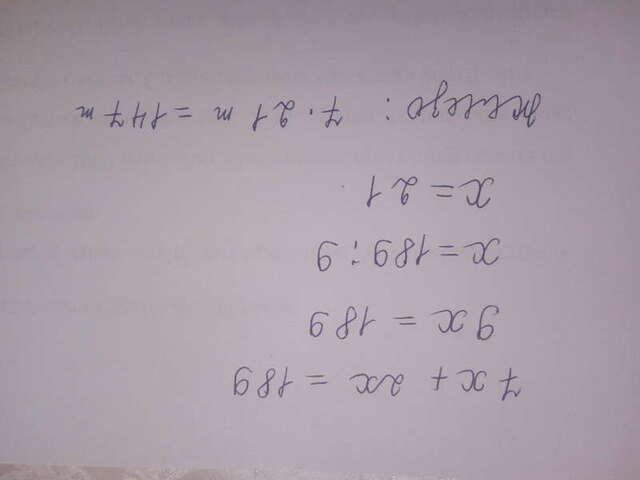 7x + 2x = 189
9x = 189
x = 189 : 9
x = 21
железо : 7 · 21 т = 147 т